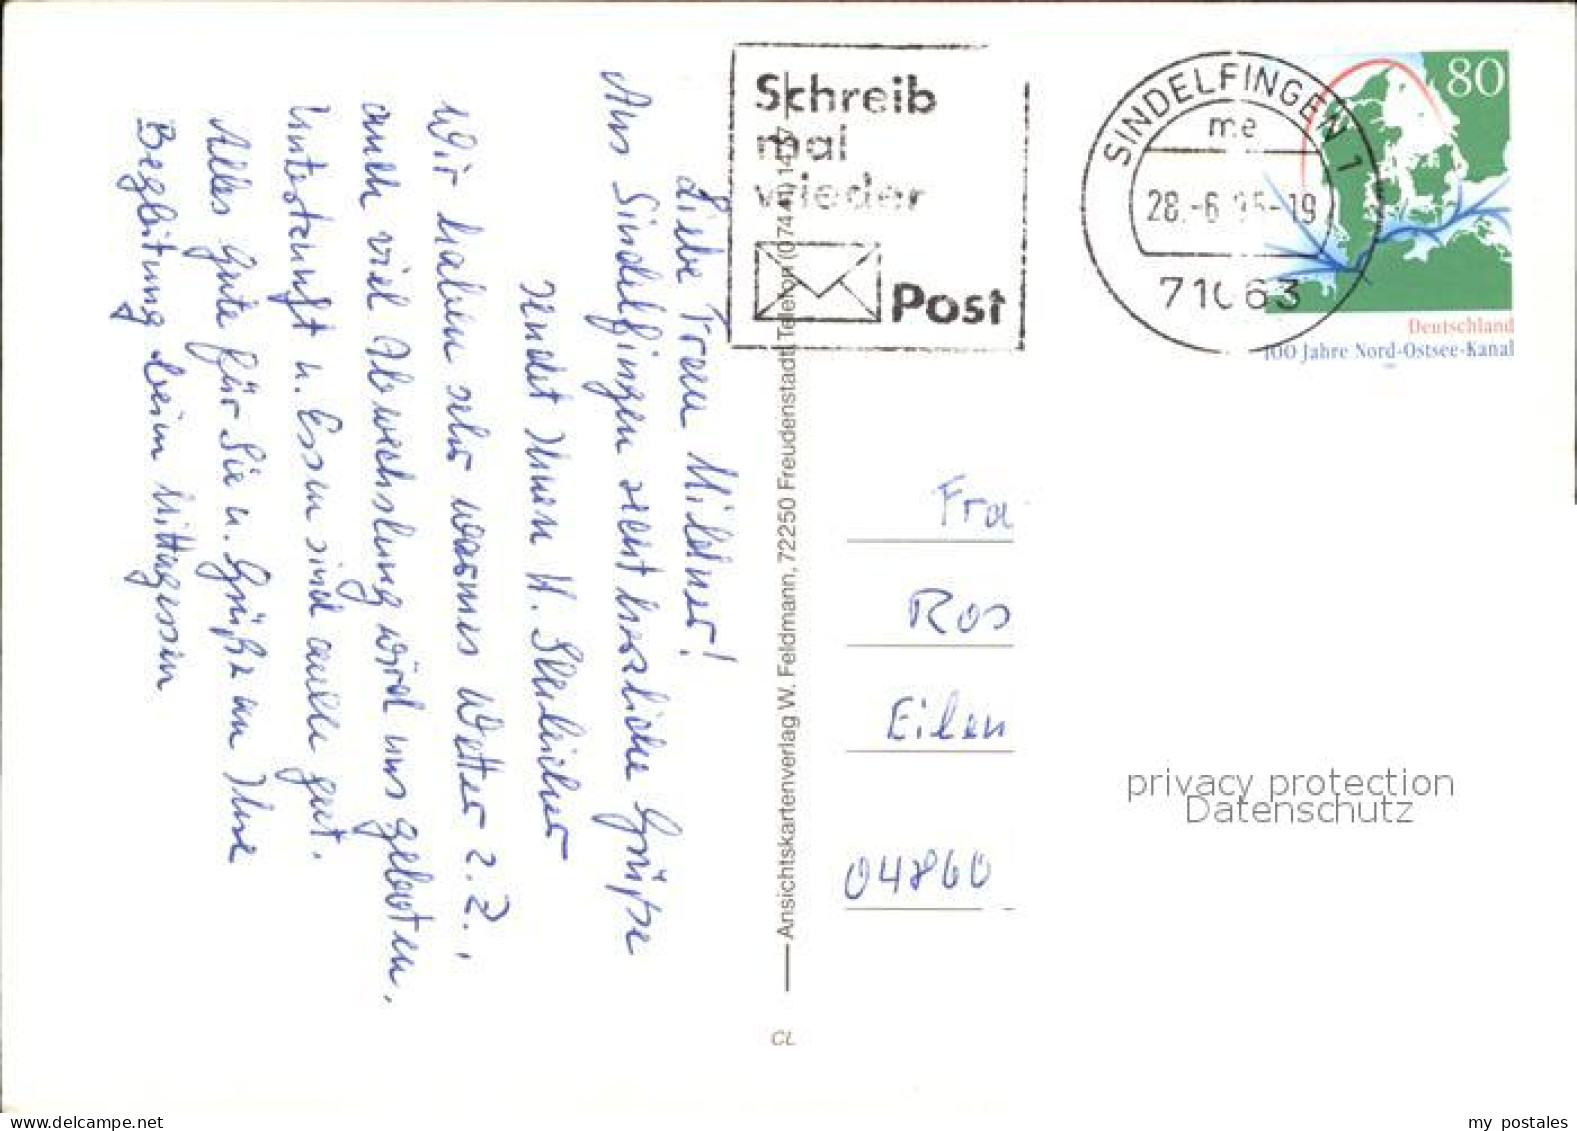 Liebe Frau Mildner!
Aus Sindelfingen recht herzliche Grüße
sendet Ihnen H. Streicher
Wir haben sehr warmes Wetter z. Z.,
auch viel Abwechslung wird uns geboten.
Unterkunft u. Essen sind auch gut.
Alles Gute für Sie u. Grüße an Ihre
Begleitung beim Mittagessen
Schreib
mal
wieder
Post
SINDELFINGEN 1
me
28.-6. 95-19
71063
80
Deutschland
100 Jahre Nord-Ostsee-Kanal
Ansichtskartenverlag W. Feldmann, 72250 Freudenstadt, Telefon
CL
Frau
Ros
Eilen
04860
privacy protection
Datenschutz
www.delcampe.net
my postales